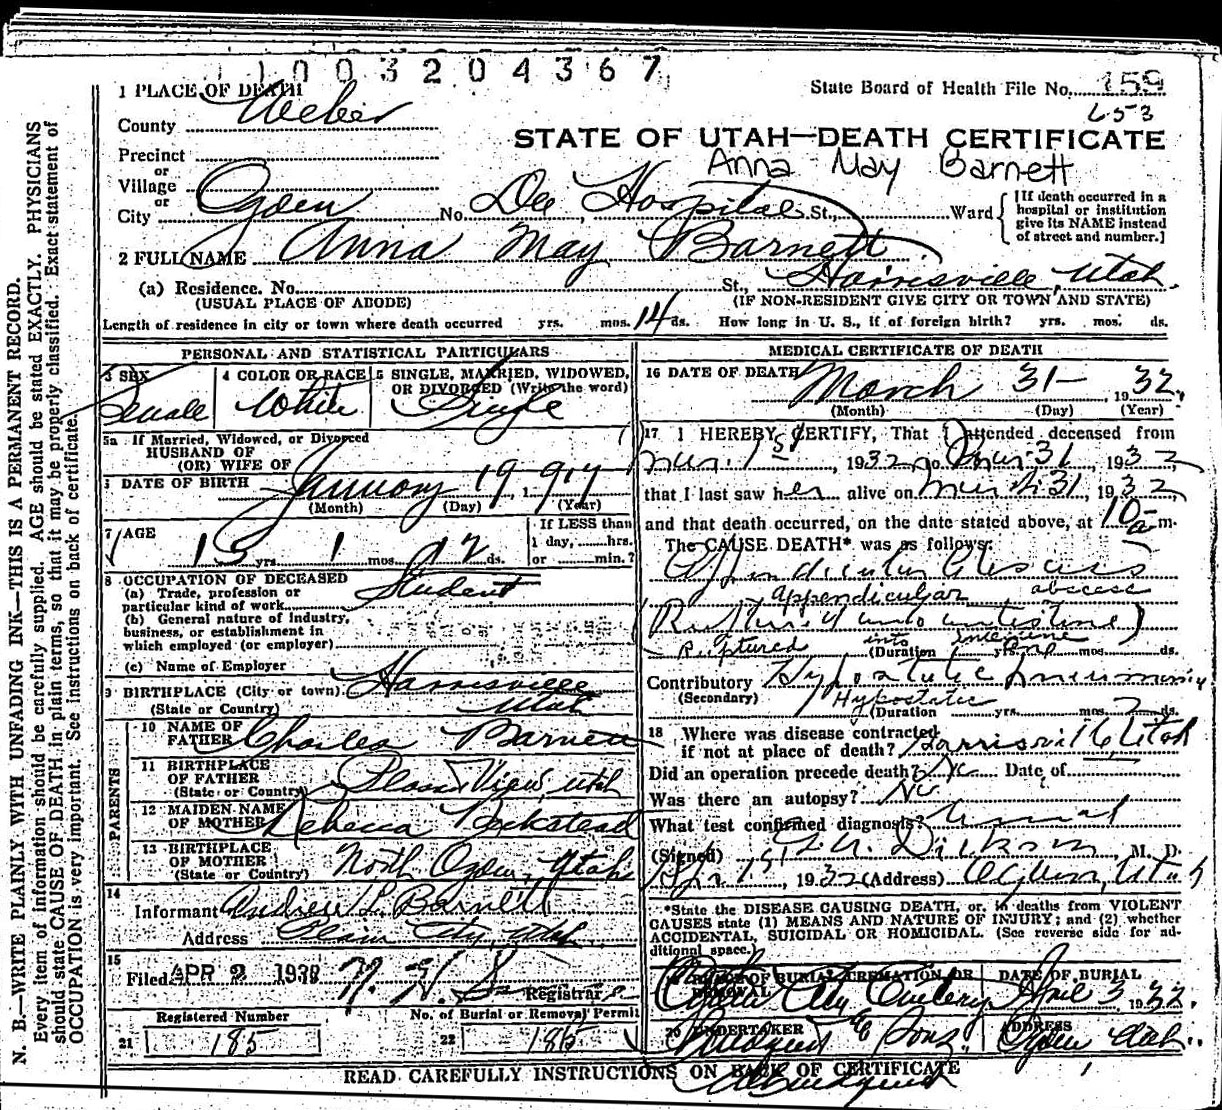 1 1 0 0 3 2 0 4 3 6 7
1 PLACE OF DEATH
State Board of Health File No. 159
653
County Weber
STATE OF UTAH—DEATH CERTIFICATE
Precinct
or
Village
Anna May Barnett
or
City Ogden No. Dee Hospital St., Ward
[If death occurred in a
hospital or institution
give its NAME instead
of street and number.]
2 FULL NAME Anna May Barnett
(a) Residence. No. St., Harrisville, Utah.
(USUAL PLACE OF ABODE) (IF NON-RESIDENT GIVE CITY OR TOWN AND STATE)
Length of residence in city or town where death occurred yrs. mos. 14 ds. How long in U. S., if of foreign birth? yrs. mos. ds.
PERSONAL AND STATISTICAL PARTICULARS
3 SEX Female
4 COLOR OR RACE White
5 SINGLE, MARRIED, WIDOWED,
OR DIVORCED (Write the word) Single
5a If Married, Widowed, or Divorced
HUSBAND OF
(OR) WIFE OF
DATE OF BIRTH January 19, 1917
(Month) (Day) (Year)
7 AGE 15 yrs. 1 mos. 12 ds.
If LESS than
1 day, hrs.
or min.?
8 OCCUPATION OF DECEASED
(a) Trade, profession or
particular kind of work Student
(b) General nature of industry,
business, or establishment in
which employed (or employer)
(c) Name of Employer
9 BIRTHPLACE (City or town) Harrisville
(State or Country) Utah
PARENTS
10 NAME OF
FATHER Charles Barnett
11 BIRTHPLACE
OF FATHER
(State or Country) Plain View, Utah
12 MAIDEN NAME
OF MOTHER Rebecca Beckstead
13 BIRTHPLACE
OF MOTHER
(State or Country) North Ogden, Utah
14
Informant Andrew L. Barnett
Address Plain City, Utah
15
Filed APR 2 1932 Registrar
Registered Number
21 185
No. of Burial or Removal Permit
22 185
MEDICAL CERTIFICATE OF DEATH
16 DATE OF DEATH March 31- 1932.
(Month) (Day) (Year)
17 I HEREBY CERTIFY, That I attended deceased from
Mar. 1st, 1932 to Mar 31 1932,
that I last saw her alive on March 31, 1932
and that death occurred, on the date stated above, at 10- a m.
The CAUSE DEATH* was as follows:
Appendicular Abscess
Appendicular abscess
(Ruptured into intestine)
Ruptured into intestine
(Duration yrs. mos. ds.
Contributory Hypostatic pneumonia
(Secondary) Hypostatic
(Duration yrs. mos. 2 ds.
18 Where was disease contracted
if not at place of death? Harrisville, Utah
Did an operation precede death? No Date of
Was there an autopsy? No
What test confirmed diagnosis? Usual
(Signed) Dickson, M. D.
Apr 1st, 1932 (Address) Ogden, Utah
*State the DISEASE CAUSING DEATH, or, in deaths from VIOLENT
CAUSES state (1) MEANS AND NATURE OF INJURY; and (2) whether
ACCIDENTAL, SUICIDAL OR HOMICIDAL. (See reverse side for ad-
ditional space.)
PLACE OF BURIAL, CREMATION OR
REMOVAL
Ogden City Cemetery
DATE OF BURIAL
April 3 1932.
20 UNDERTAKER
Lindquist & Sons.
ADDRESS
Ogden Utah.
READ CAREFULLY INSTRUCTIONS ON BACK OF CERTIFICATE
N. B.—WRITE PLAINLY WITH UNFADING INK—THIS IS A PERMANENT RECORD.
Every item of information should be carefully supplied. AGE should be stated EXACTLY. PHYSICIANS
should state CAUSE OF DEATH in plain terms, so that it may be properly classified. Exact statement of
OCCUPATION is very important. See instructions on back of certificate.